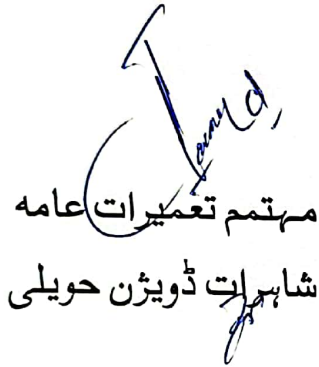 مہتمم تعمیرات عامہ
شاہرات ڈویژن حویلی